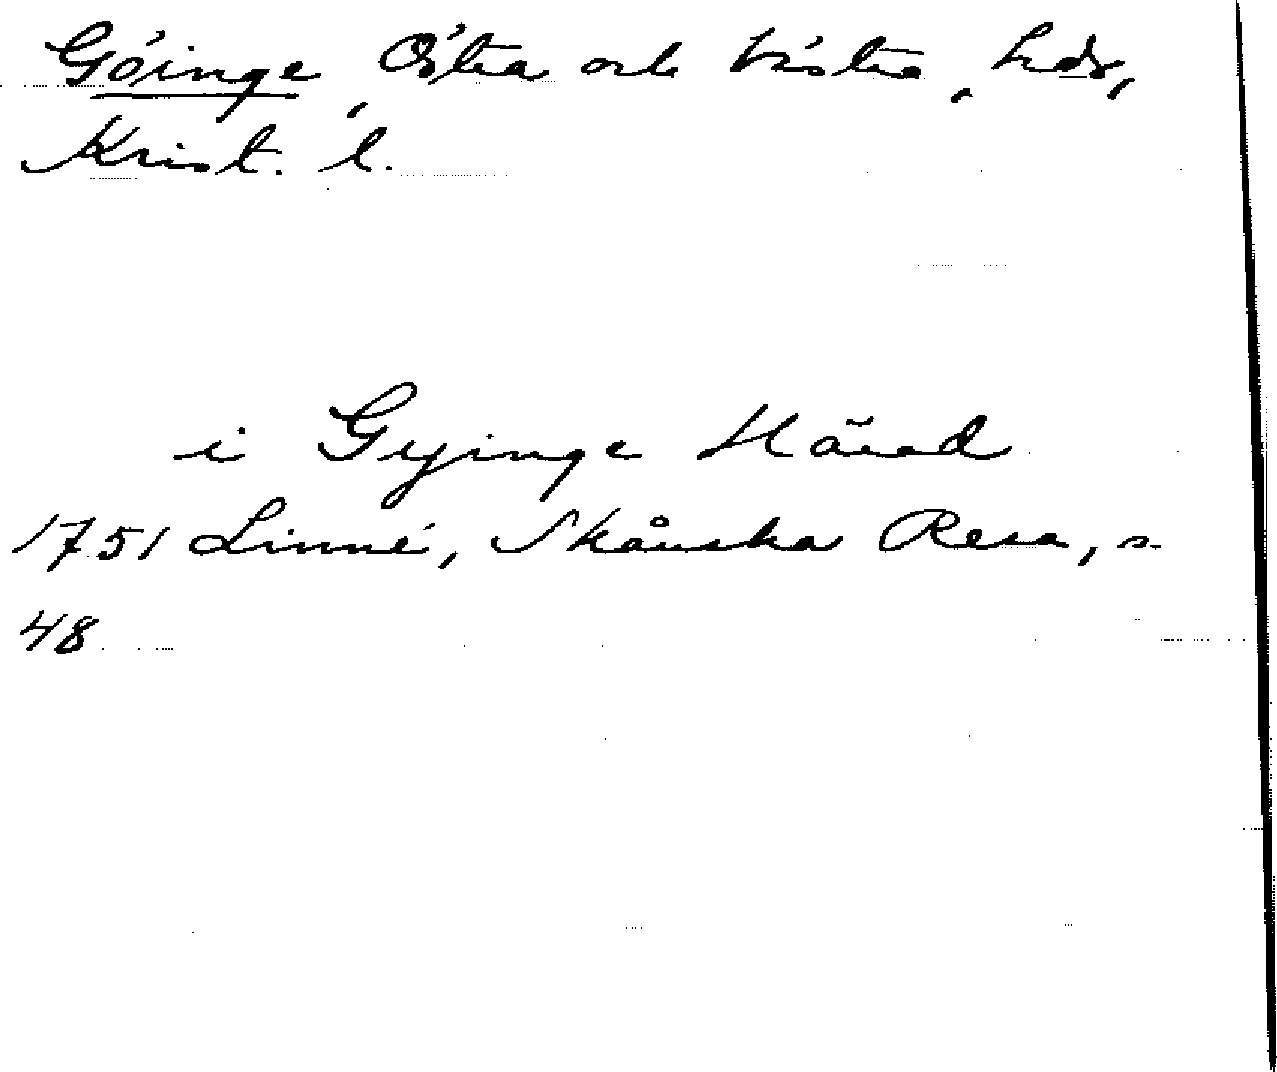 Göinge, Östra och Västra, hdr,
Krist. l.
i Gyinge Härad
1751 Linné, Skånska Resa, s.
48